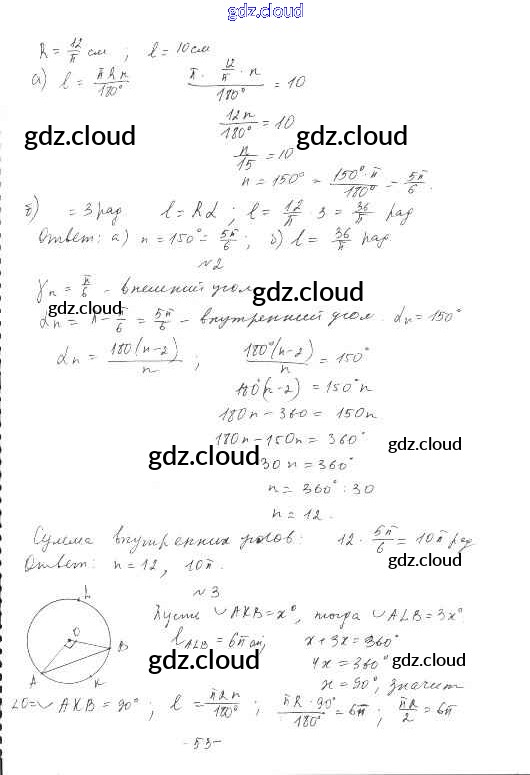 gdz.cloud
R = 12/π см ; l = 10 см
а) l = πRn/180° π · 12/π · n / 180° = 10
12n/180° = 10
gdz.cloud gdz.cloud
n/15 = 10
n = 150° = 150°·π/180° = 5π/6.
б) = 3 рад l = Rα ; l = 12/π · 3 = 36/π рад
Ответ: а) n = 150° = 5π/6 ; б) l = 36/π рад.
№2
γn = π/6 - внешний угол
gdz.cloud gdz.cloud
αn = π - π/6 = 5π/6 - внутренний угол. αn = 150°
αn = 180(n-2)/n ; 180°(n-2)/n = 150°
180°(n-2) = 150°n
180n - 360 = 150n
180n - 150n = 360°
gdz.cloud gdz.cloud
30n = 360°
n = 360° : 30
n = 12.
Сумма внутренних углов: 12 · 5π/6 = 10π рад
gdz.cloud
Ответ: n = 12, 10π.
№3
L
Пусть ∪AKB = x°, тогда ∪ALB = 3x°
O
B
l ALB = 6π см, x + 3x = 360°
gdz.cloud gdz.cloud
4x = 360°
A K
x = 90°, значит
∠O = ∪AKB = 90° ; l = πRn/180° ; πR·90°/180° = 6π ; πR/2 = 6π
gdz.cloud gdz.cloud
- 53 -